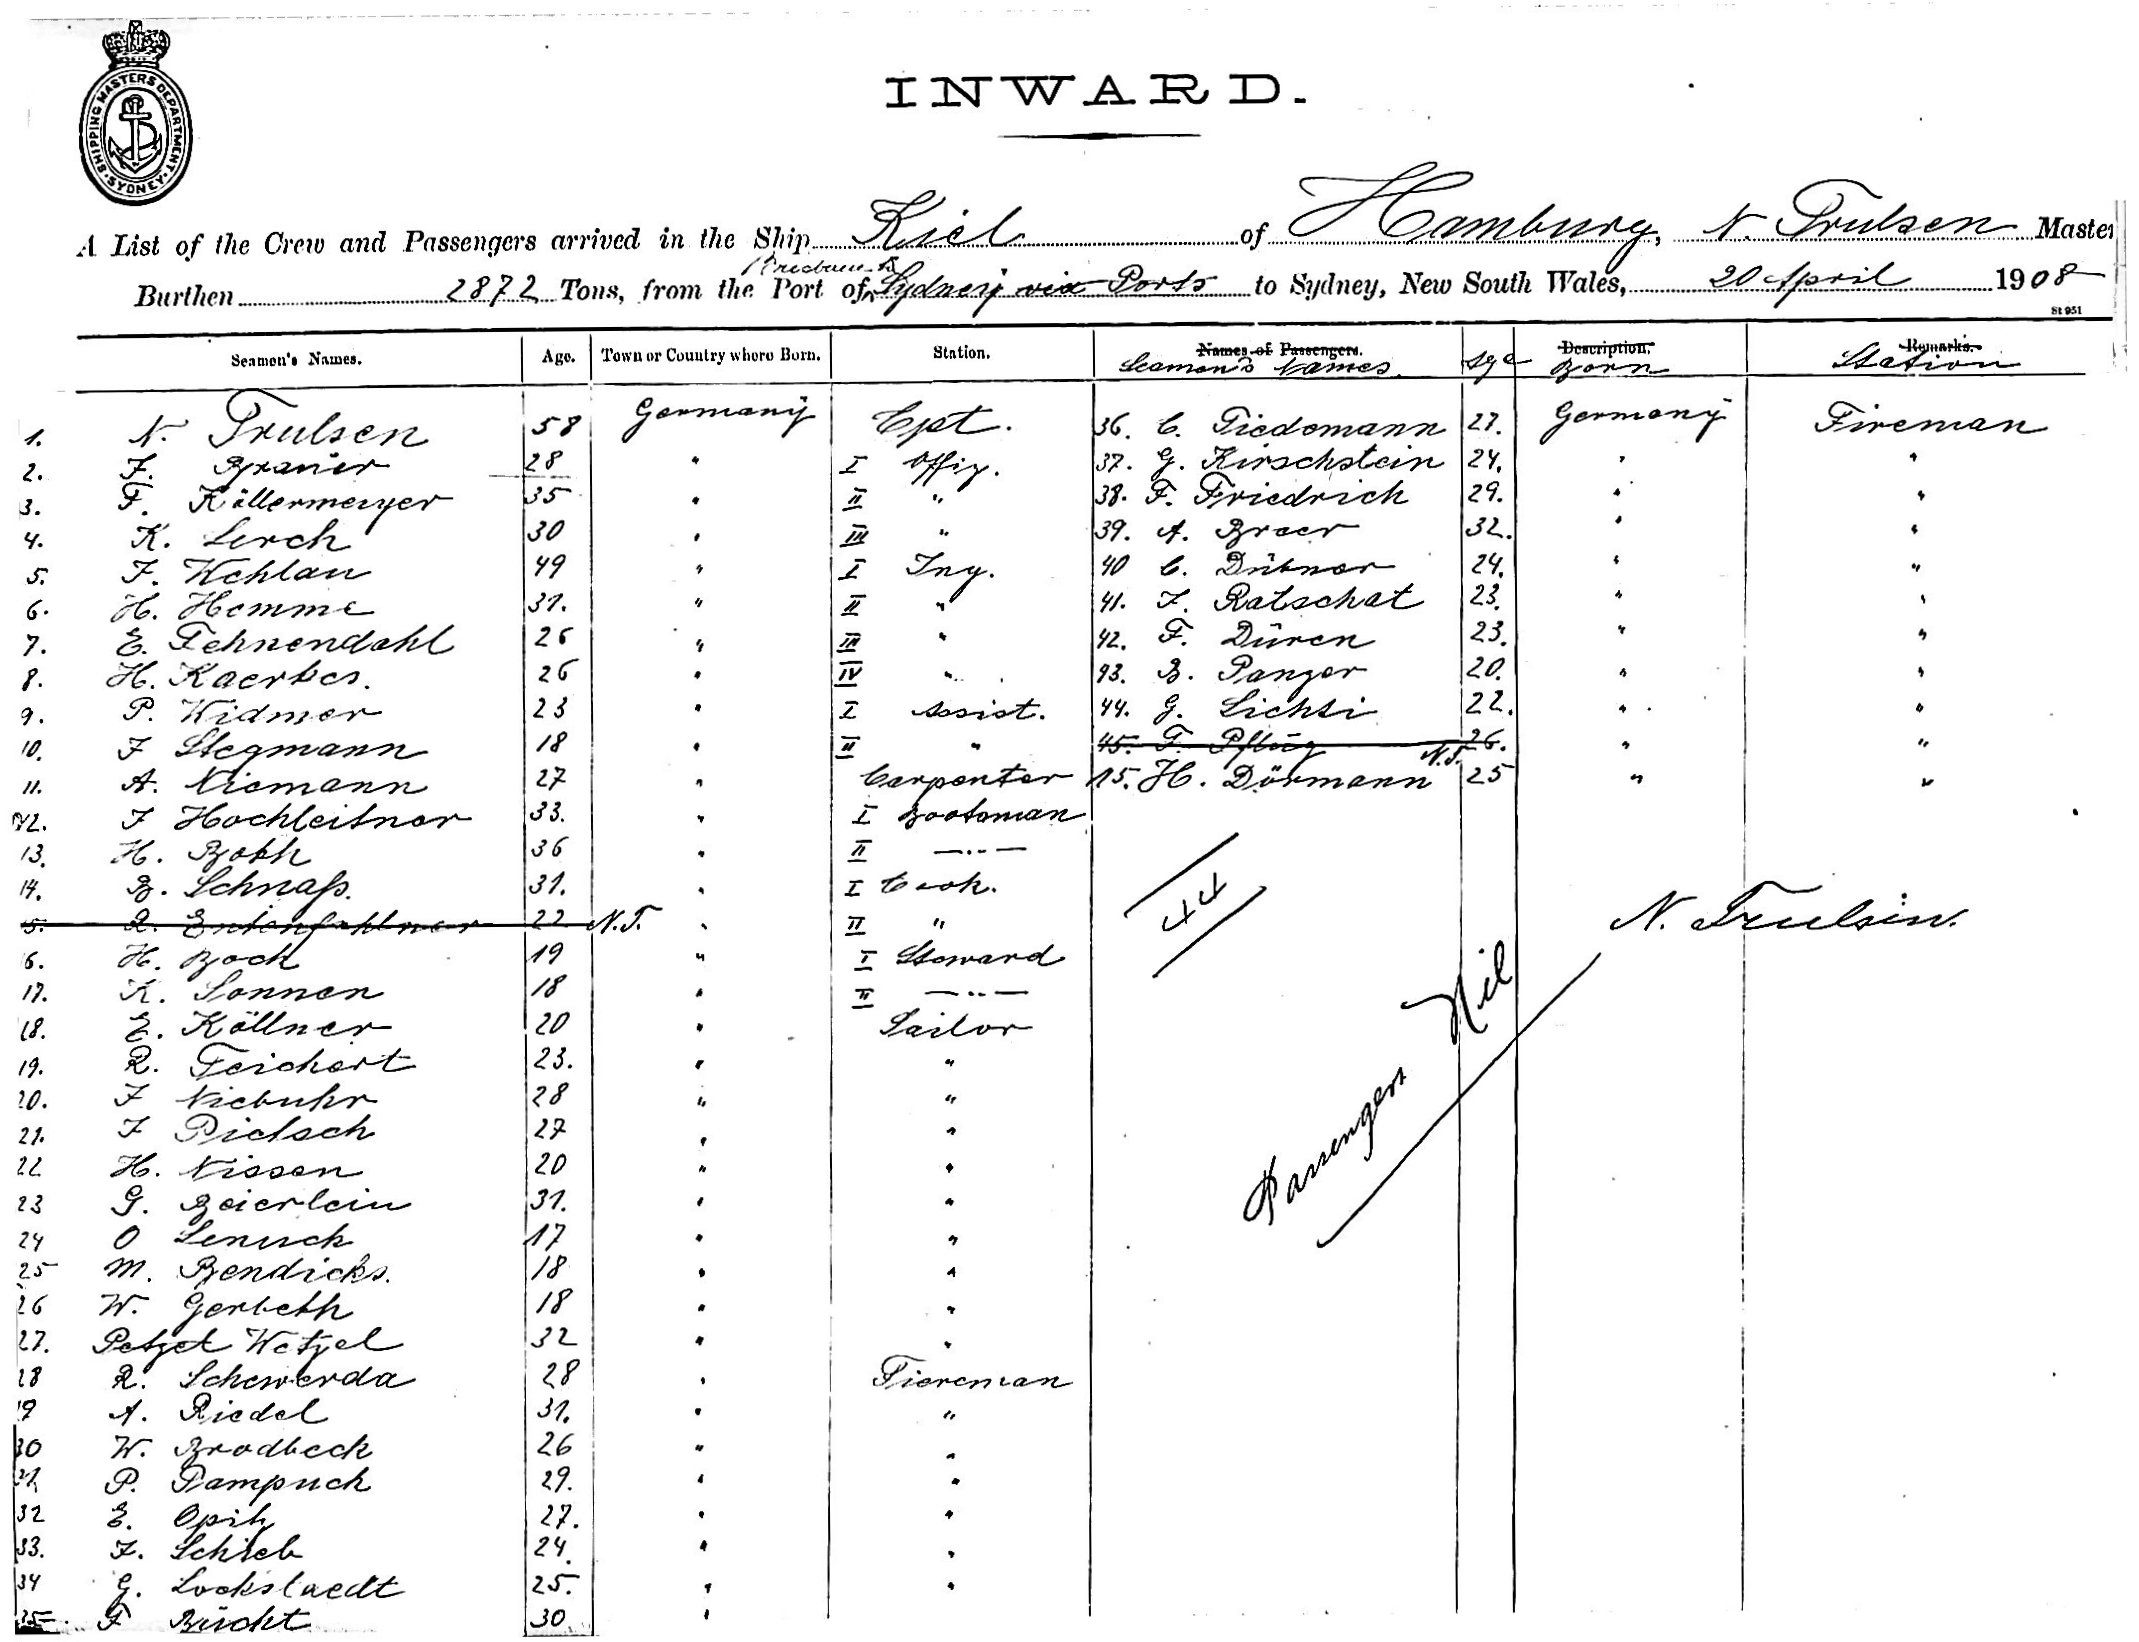 SHIPPING MASTERS DEPARTMENT. SYDNEY.
INWARD.
A List of the Crew and Passengers arrived in the Ship Kiel of Hamburg, N. Trulsen Master
Brisbane &
Burthen 2872 Tons, from the Port of Sydney via Ports to Sydney, New South Wales, 20 April 1908
St 951
Seamen's Names. Age. Town or Country where Born. Station. Names of Passengers. Description. Remarks.
Seamen's Names. Age Born Station
1. N. Trulsen 58 Germany Cpt. 36. C. Tiedemann 27. Germany Fireman
2. F. Brauer 28 " I Offiz. 37. G. Kirschstein 24. " "
3. F. Köllermeyer 35 " II " 38. F. Friedrich 29. " "
4. K. Lerch 30 " III " 39. A. Breer 32. " "
5. F. Wehlau 49 " I Ing. 40 C. Dübner 24. " "
6. H. Hemme 31. " II " 41. F. Ratschat 23. " "
7. E. Fehnendahl 26 " III " 42. F. Düren 23. " "
8. H. Kaerkes. 26 " IV " 43. B. Panzer 20. " "
9. P. Widmer 23 " I Assist. 44. G. Lichti 22. " "
10. F Stegmann 18 " II " 45. F. Pflüg 26. " "
N.T.
11. A. Niemann 27 " Carpenter 15. H. Dörmann 25 " "
12. F Hochleitner 33. " I Bootsman
13. H. Both 36 " II —„—
14. B. Schnaß. 31. " I Cook.
44
5. R. 22 N.T. " II " N. Trulsen.
6. H. Bock 19 " I Steward
17. K. Sonnen 18 " II —„—
Passengers Nil
18. E. Köllner 20 " Sailor
19. R. Teichert 23. " "
20. F Niebuhr 28 " "
21. F Pietsch 27 " "
22 H. Nissen 20 " "
23 G. Beierlein 31. " "
24 O Lenisch 17 " "
25 M. Bendicks. 18 " "
26 W. Gerbeth 18 " "
27. Petzet Wetzel 32 " "
28 R. Schewerda 28 " Fiereman
19 A. Riedel 31. " "
30 W. Brodbeck 26 " "
31 P. Pampuch 29. " "
32 E. Opitz 27. " "
33. F. Schieb 24. " "
34 G. Lockstaedt 25. " "
35 F Bücht 30 "